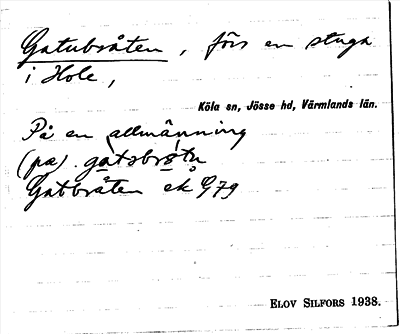 Gatubråten, förs en stuga
i Hole,
Köla sn, Jösse hd, Värmlands län.
På en allmänning
(pa). gatsbrotn
Gatbråten ek G79
ELOV SILFORS 1938.